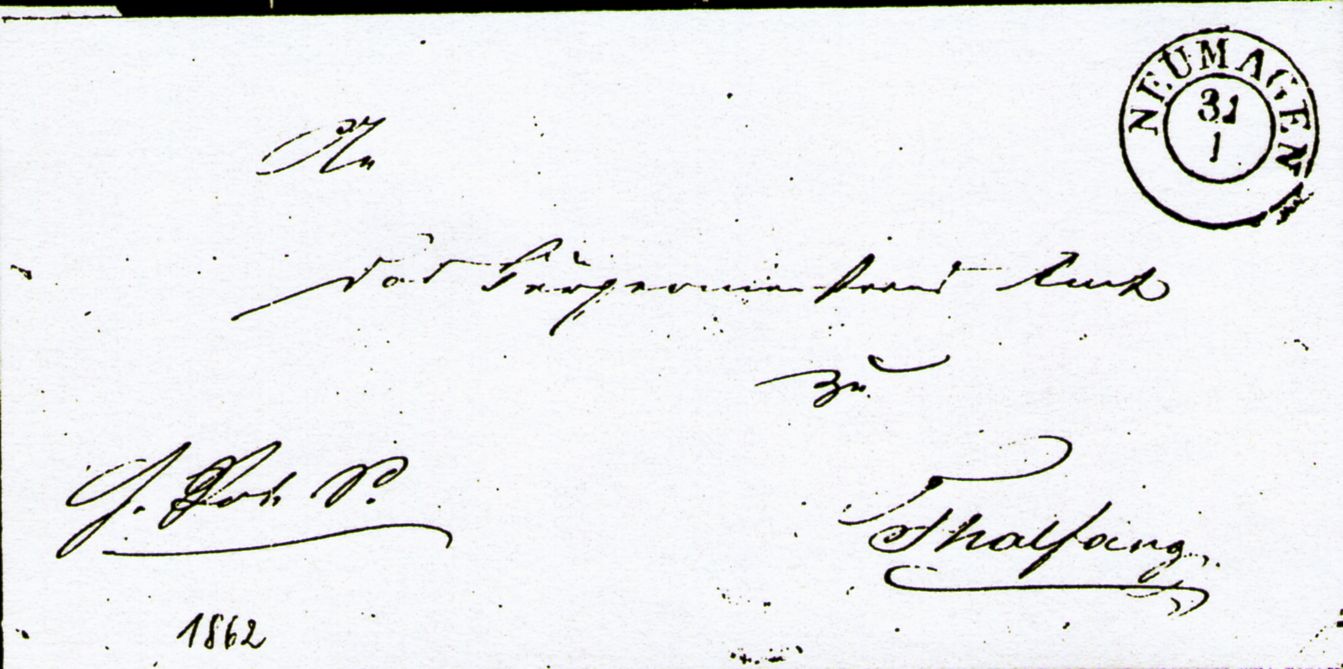 NEUMAGEN
31
1
An
das Bürgermeisterei Amt
zu
Thalfang
1862